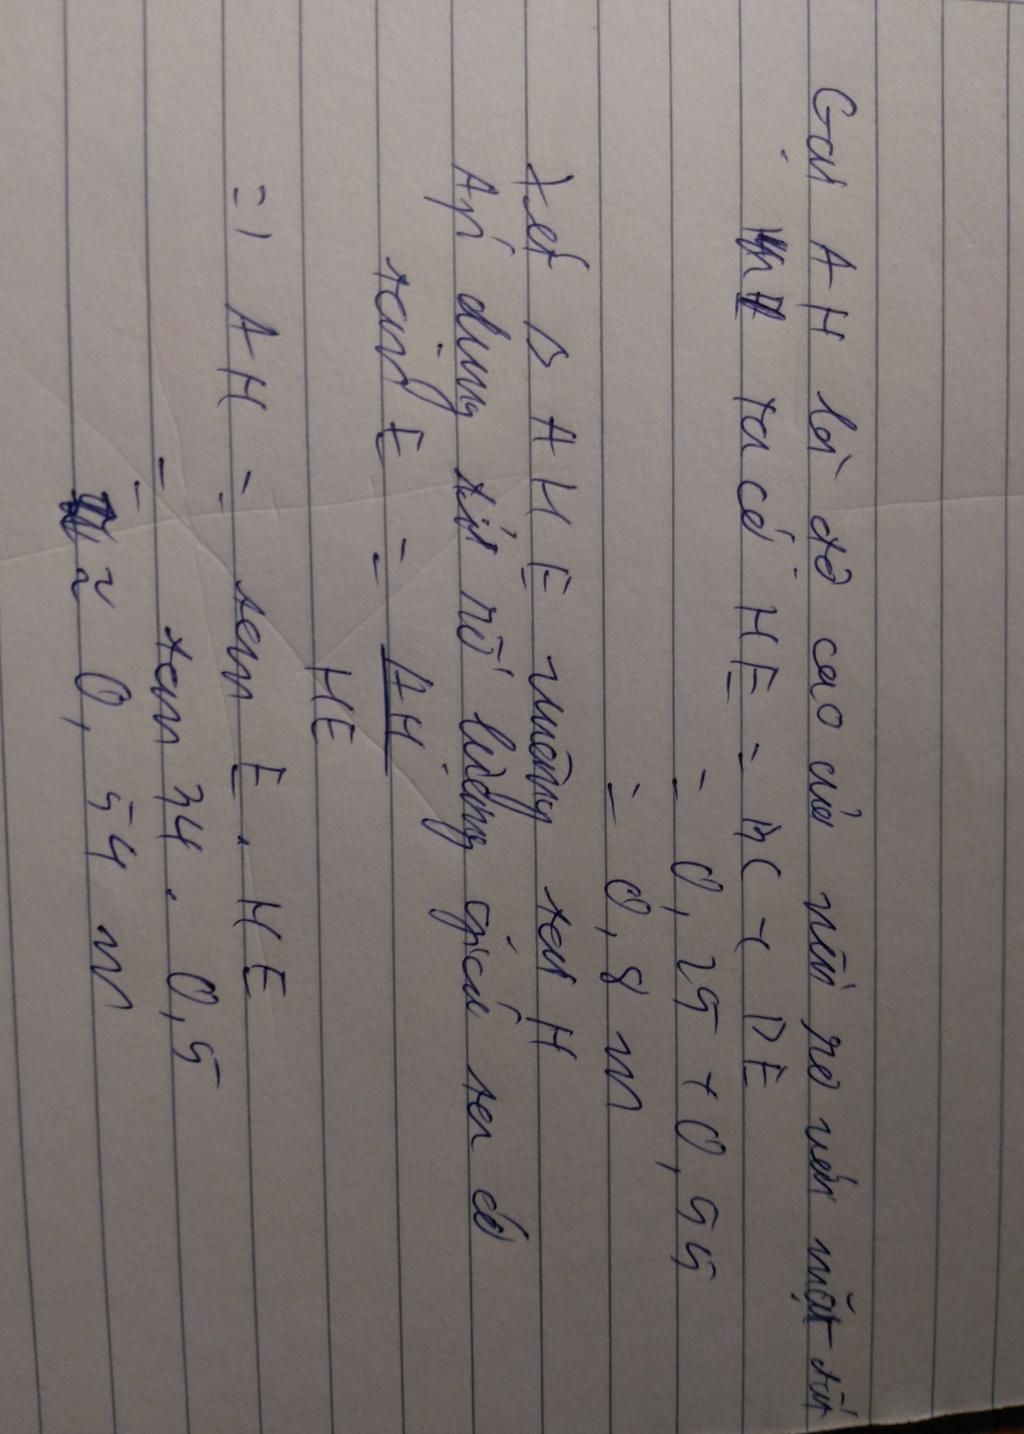 Gọi AH là độ cao của núi so với mặt đất
ta có HE = HC + DE
= 0,25 + 0,55
= 0,8 m
Xét Δ AHE vuông tại H
Áp dụng tỉ số lượng giác ta có
tan E = AH
HE
=) AH = tan E . HE
= tan 34 . 0,5
= ≈ 0,54 m